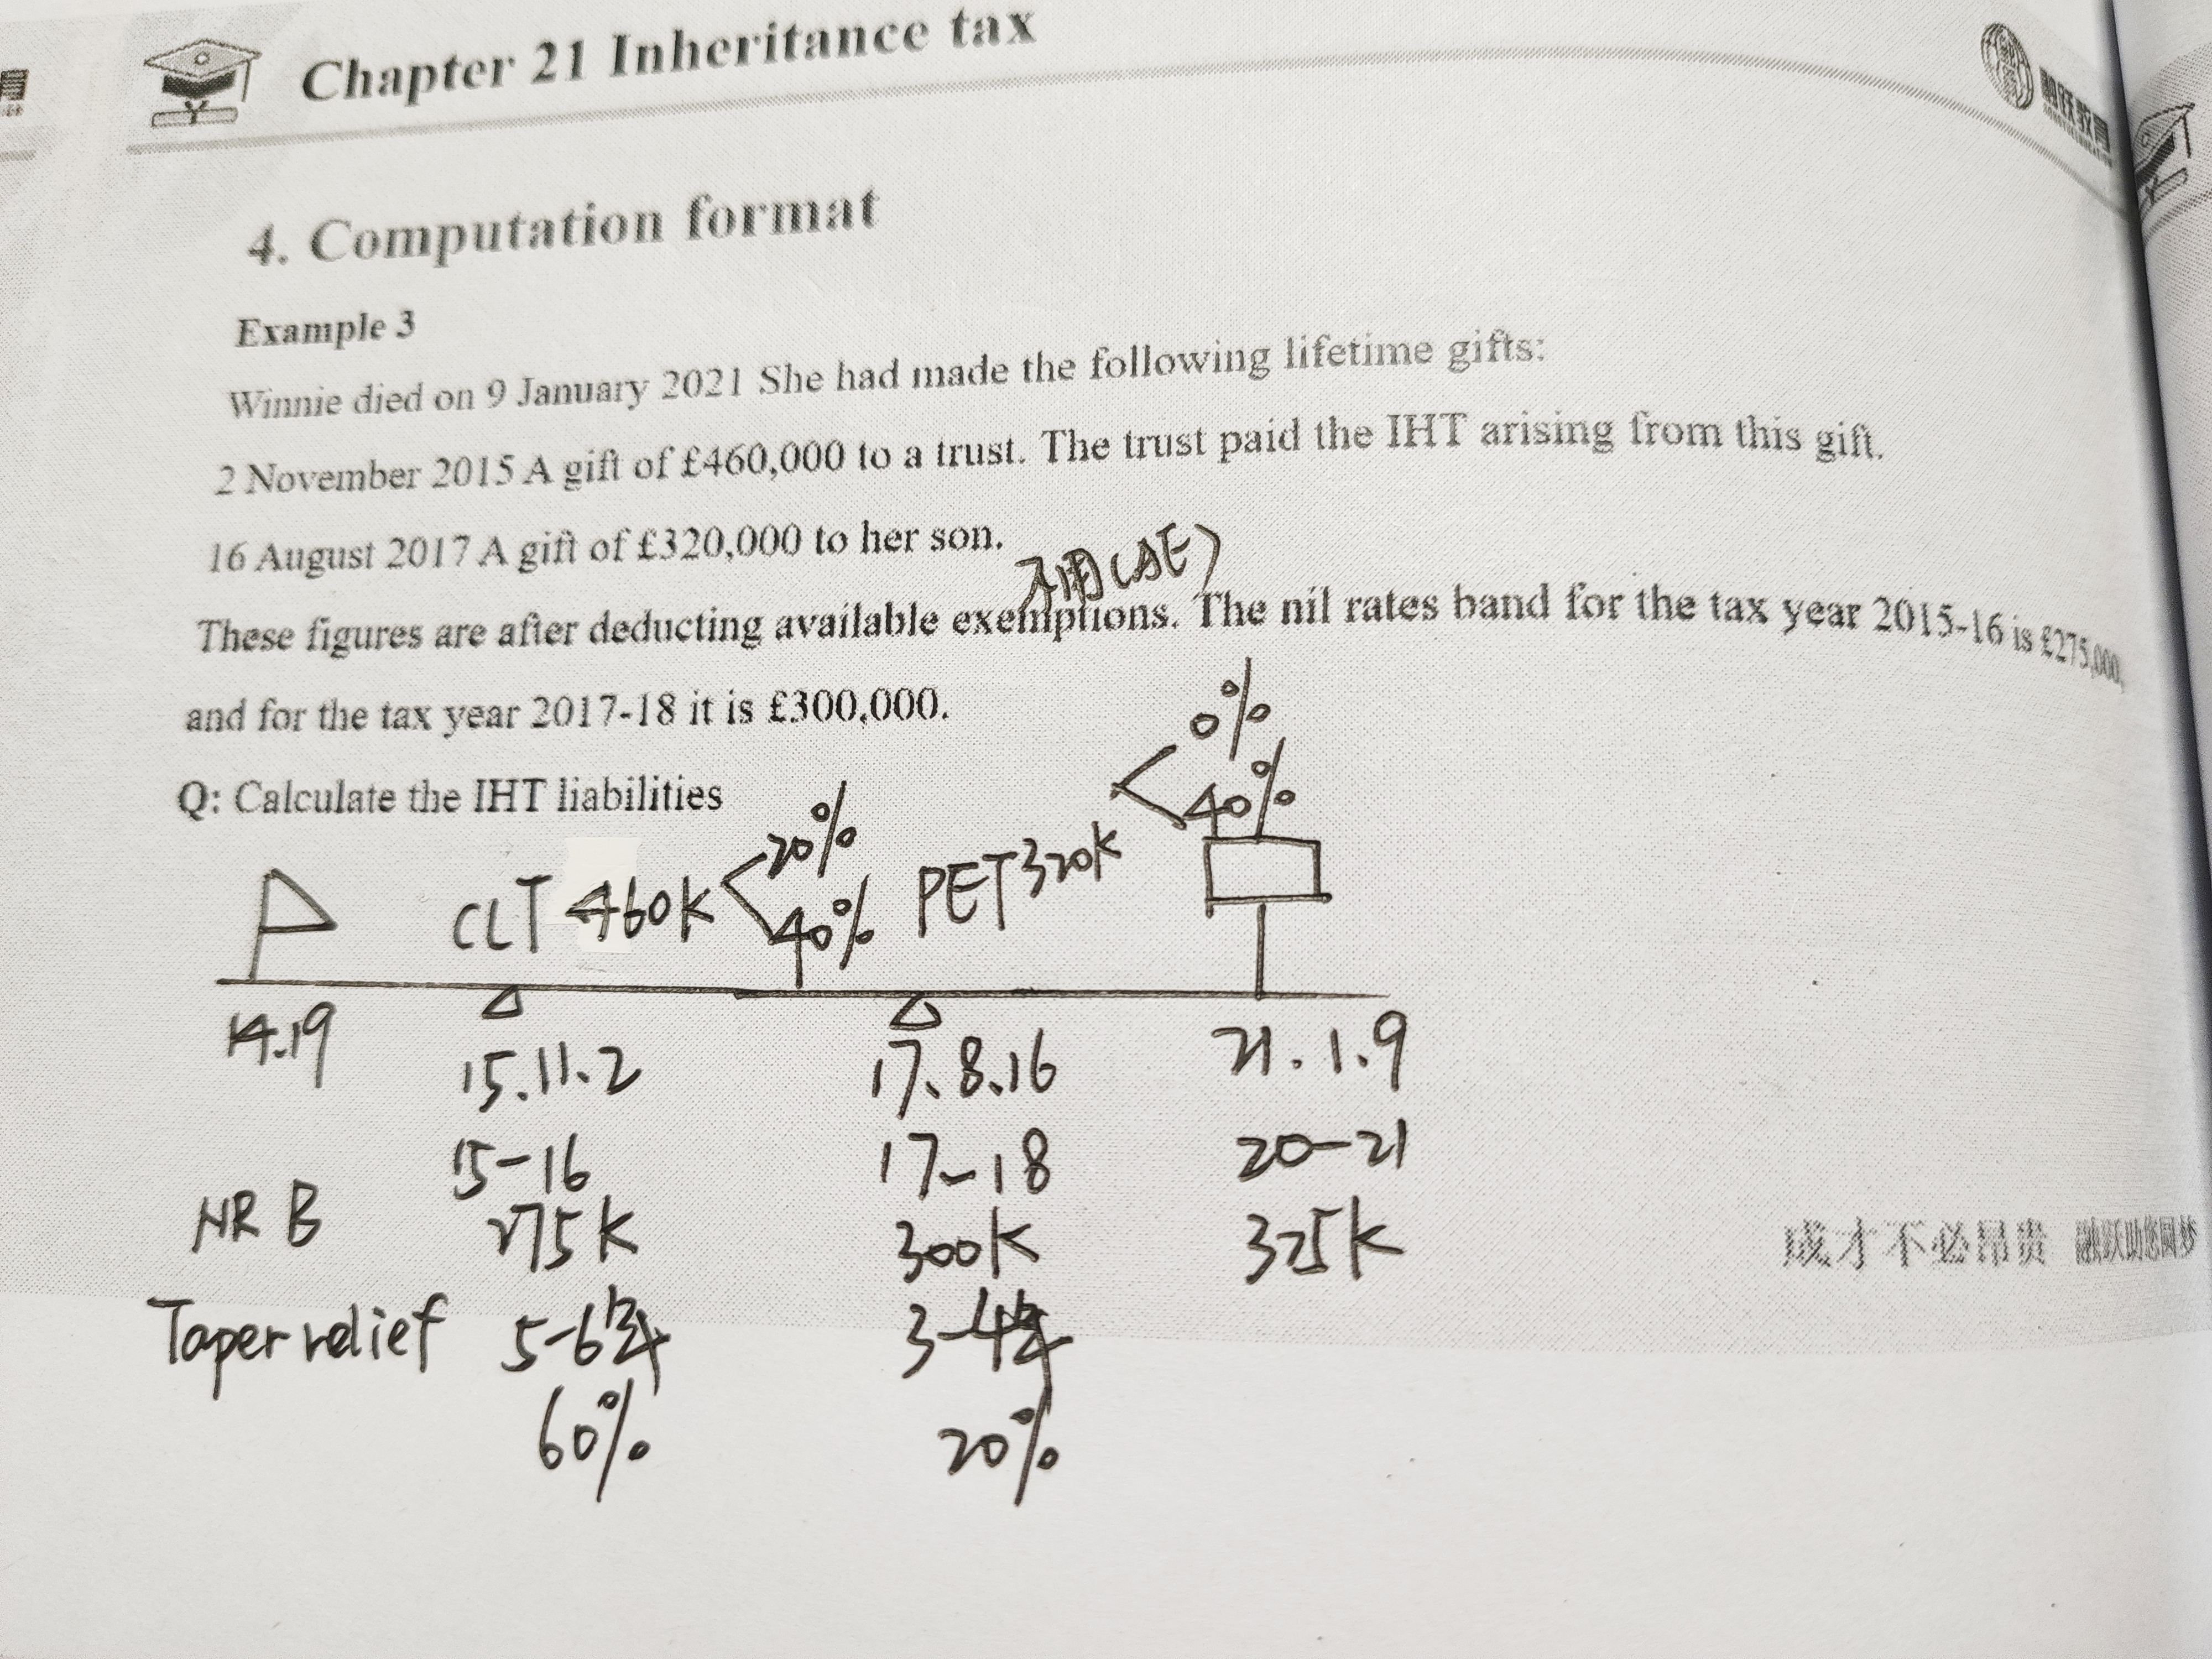 Chapter 21 Inheritance tax
融跃教育
4. Computation format
Example 3
Winnie died on 9 January 2021 She had made the following lifetime gifts:
2 November 2015 A gift of £460,000 to a trust. The trust paid the IHT arising from this gift.
16 August 2017 A gift of £320,000 to her son.
不用(AE)
These figures are after deducting available exemptions. The nil rates band for the tax year 2015-16 is £275,000,
and for the tax year 2017-18 it is £300,000.
Q: Calculate the IHT liabilities
0%
40%
20%
CLT 460K
40%
PET 320K
14.19
15.11.2
17.8.16
21.1.9
15-16
17-18
20-21
NRB
275K
300K
325K
成才不必昂贵 融跃助您圆梦
Taper relief
5-6年
3-4年
60%
20%